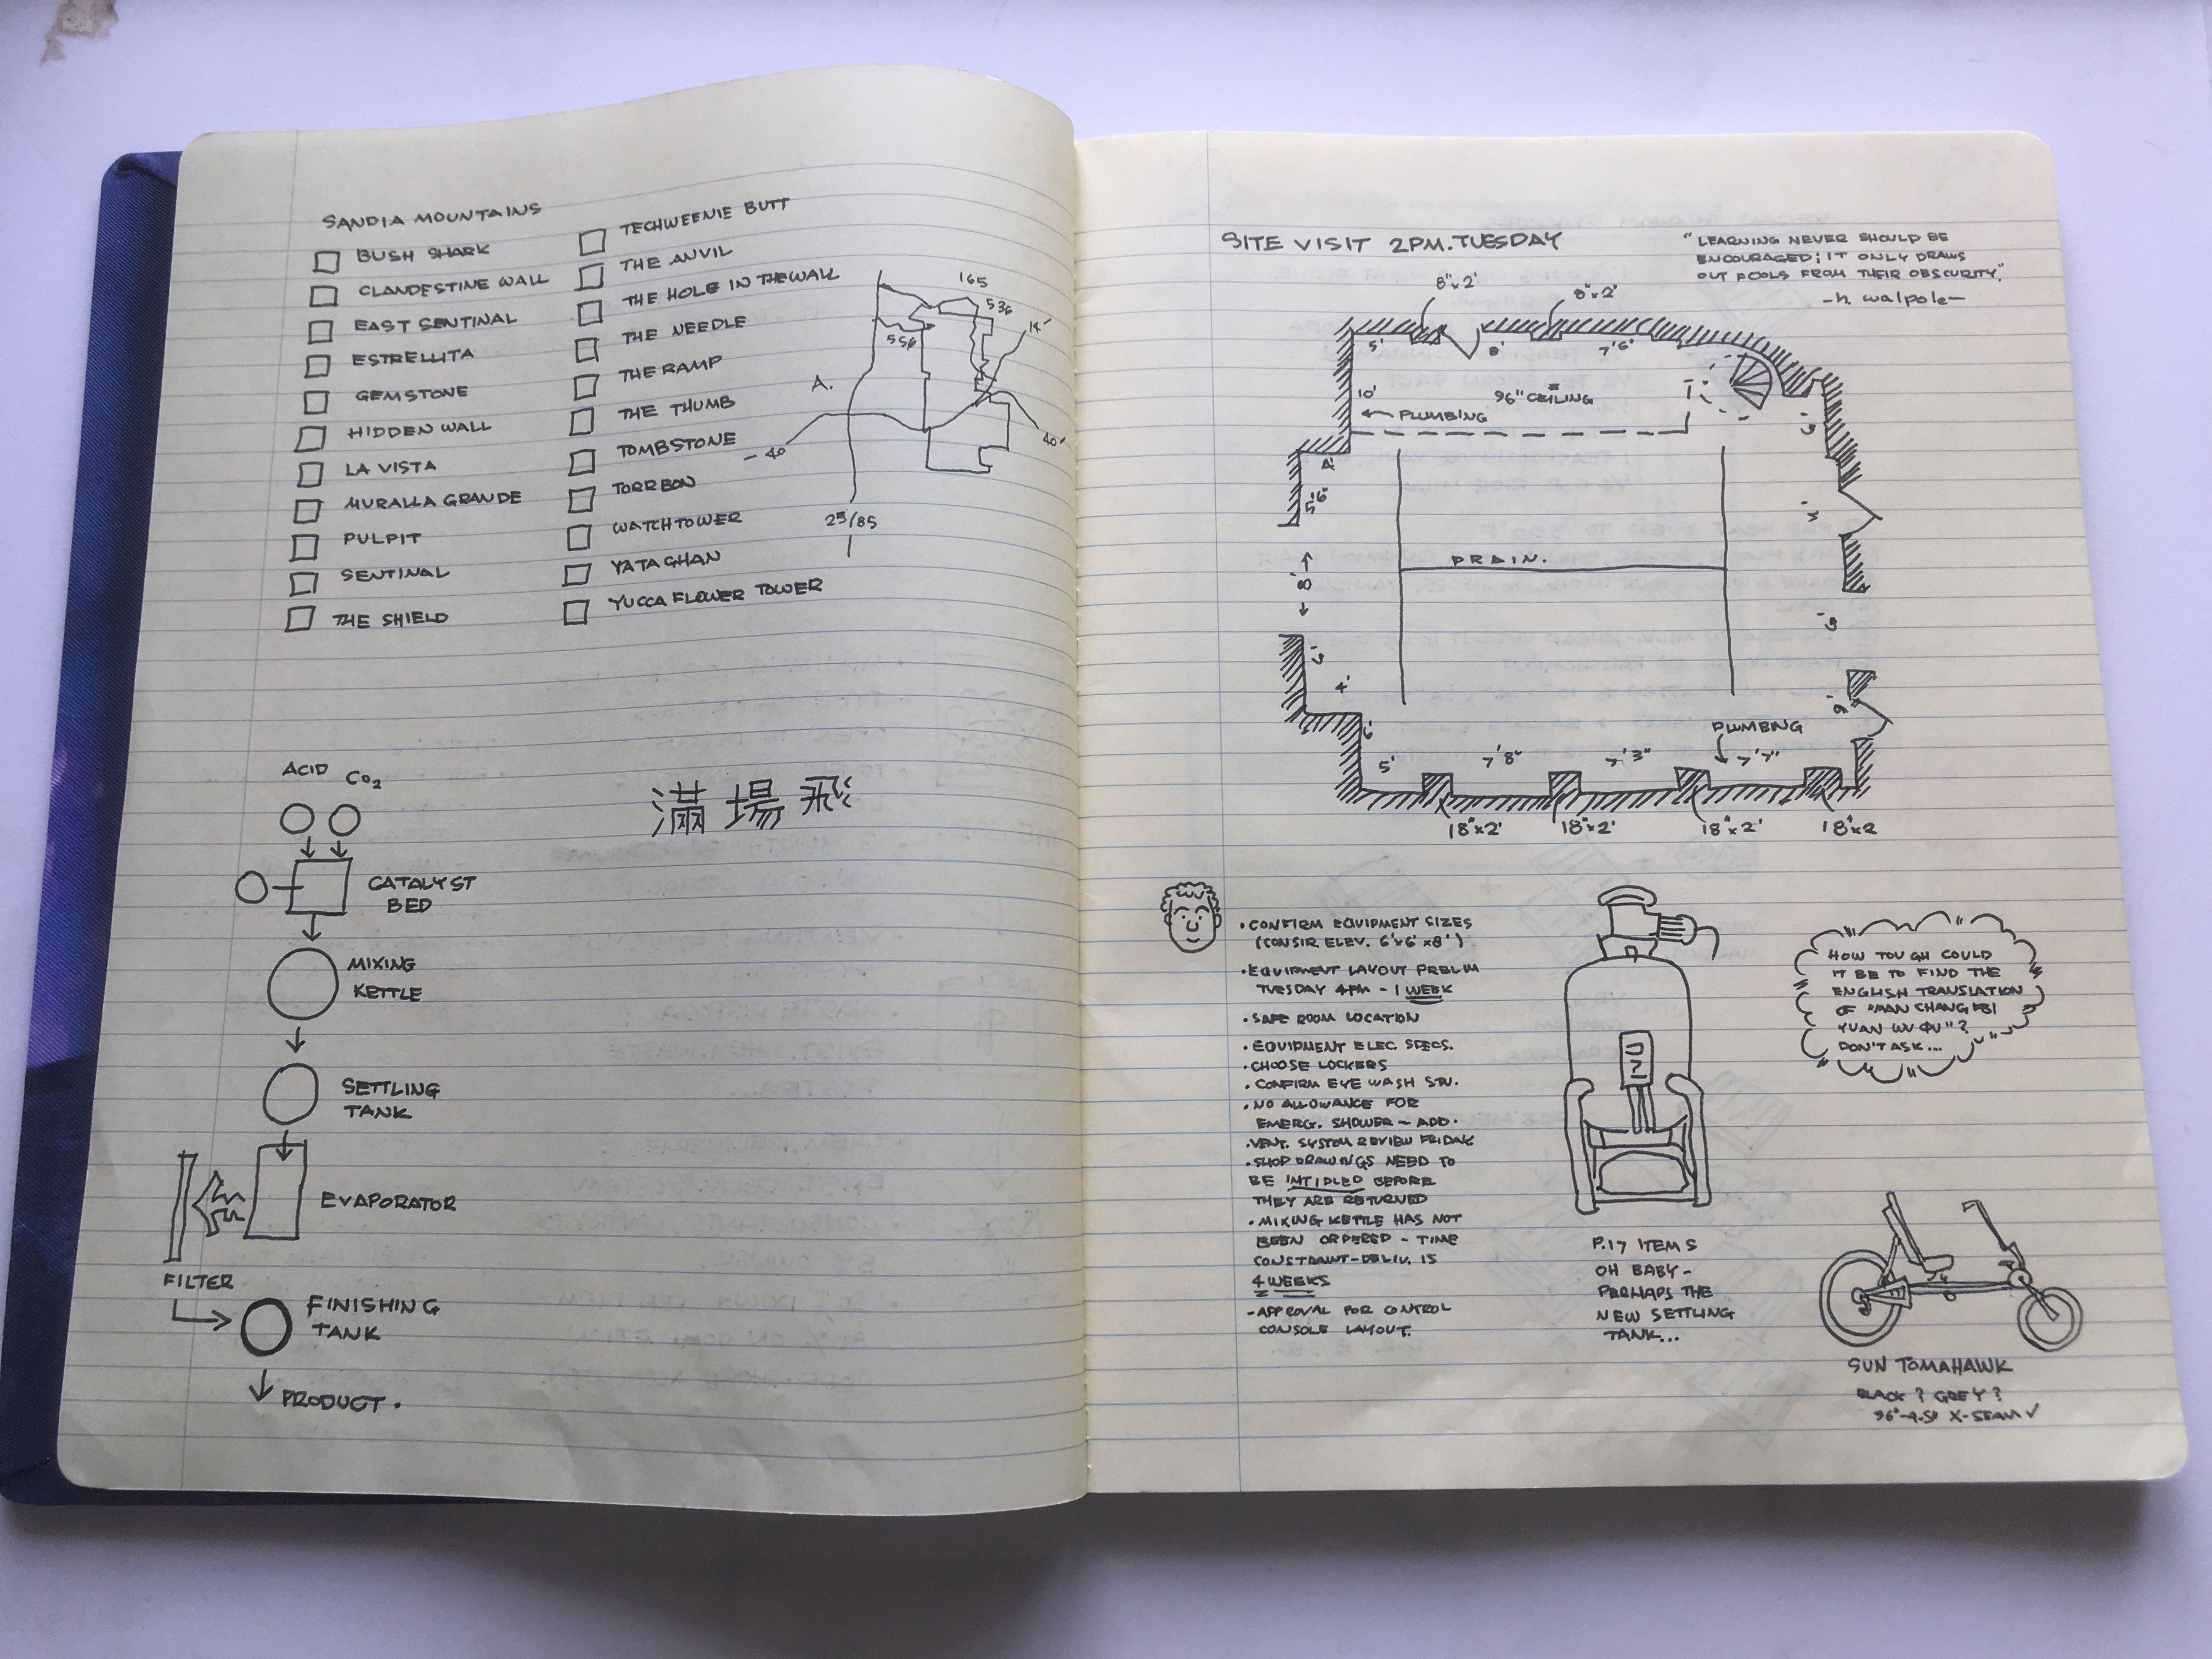 SANDIA MOUNTAINS
BUSH SHARK
CLANDESTINE WALL
EAST SENTINAL
ESTRELLITA
GEMSTONE
HIDDEN WALL
LA VISTA
MURALLA GRANDE
PULPIT
SENTINAL
THE SHIELD
TECHWEENIE BUTT
THE ANVIL
THE HOLE IN THE WALL
THE NEEDLE
THE RAMP
THE THUMB
TOMBSTONE
TORREON
WATCHTOWER
YATAGHAN
YUCCA FLOWER TOWER
165
536
14
556
A.
40
40
25/85
ACID
CO2
CATALYST
BED
MIXING
KETTLE
SETTLING
TANK
EVAPORATOR
FILTER
FINISHING
TANK
PRODUCT.
滿場飛
SITE VISIT 2PM. TUESDAY
"LEARNING NEVER SHOULD BE
ENCOURAGED; IT ONLY DRAWS
OUT FOOLS FROM THEIR OBSCURITY."
-h. walpole-
8"x2'
8"x2'
5'
8'
7'6"
10'
96" CEILING
PLUMBING
4'
5'6"
8'
DRAIN.
4'
6'
5'
7'8"
7'3"
7'7"
PLUMBING
18"x2'
18"x2'
18"x2'
18"x2
•CONFIRM EQUIPMENT SIZES
(CONSIR. ELEV. 6'x6'x8')
•EQUIPMENT LAYOUT PRELIM
TUESDAY 4PM - 1 WEEK
•SAFE ROOM LOCATION
•EQUIPMENT ELEC SPECS.
•CHOOSE LOCKERS
•CONFIRM EYE WASH STN.
•NO ALLOWANCE FOR
EMERG. SHOWER - ADD.
•VENT. SYSTEM REVIEW FRIDAY
•SHOP DRAWINGS NEED TO
BE INTIDLED BEFORE
THEY ARE RETURNED
•MIXING KETTLE HAS NOT
BEEN ORDERED - TIME
CONSTRAINT-DELIV. IS
4 WEEKS
-APPROVAL FOR CONTROL
CONSOLE LAYOUT.
P.17 ITEMS
OH BABY-
PERHAPS THE
NEW SETTLING
TANK...
HOW TOUGH COULD
IT BE TO FIND THE
ENGLISH TRANSLATION
OF "MAN CHANG FEI
YUAN WU QU"?
DON'T ASK...
SUN TOMAHAWK
BLACK? GREY?
X-SEAM ✓